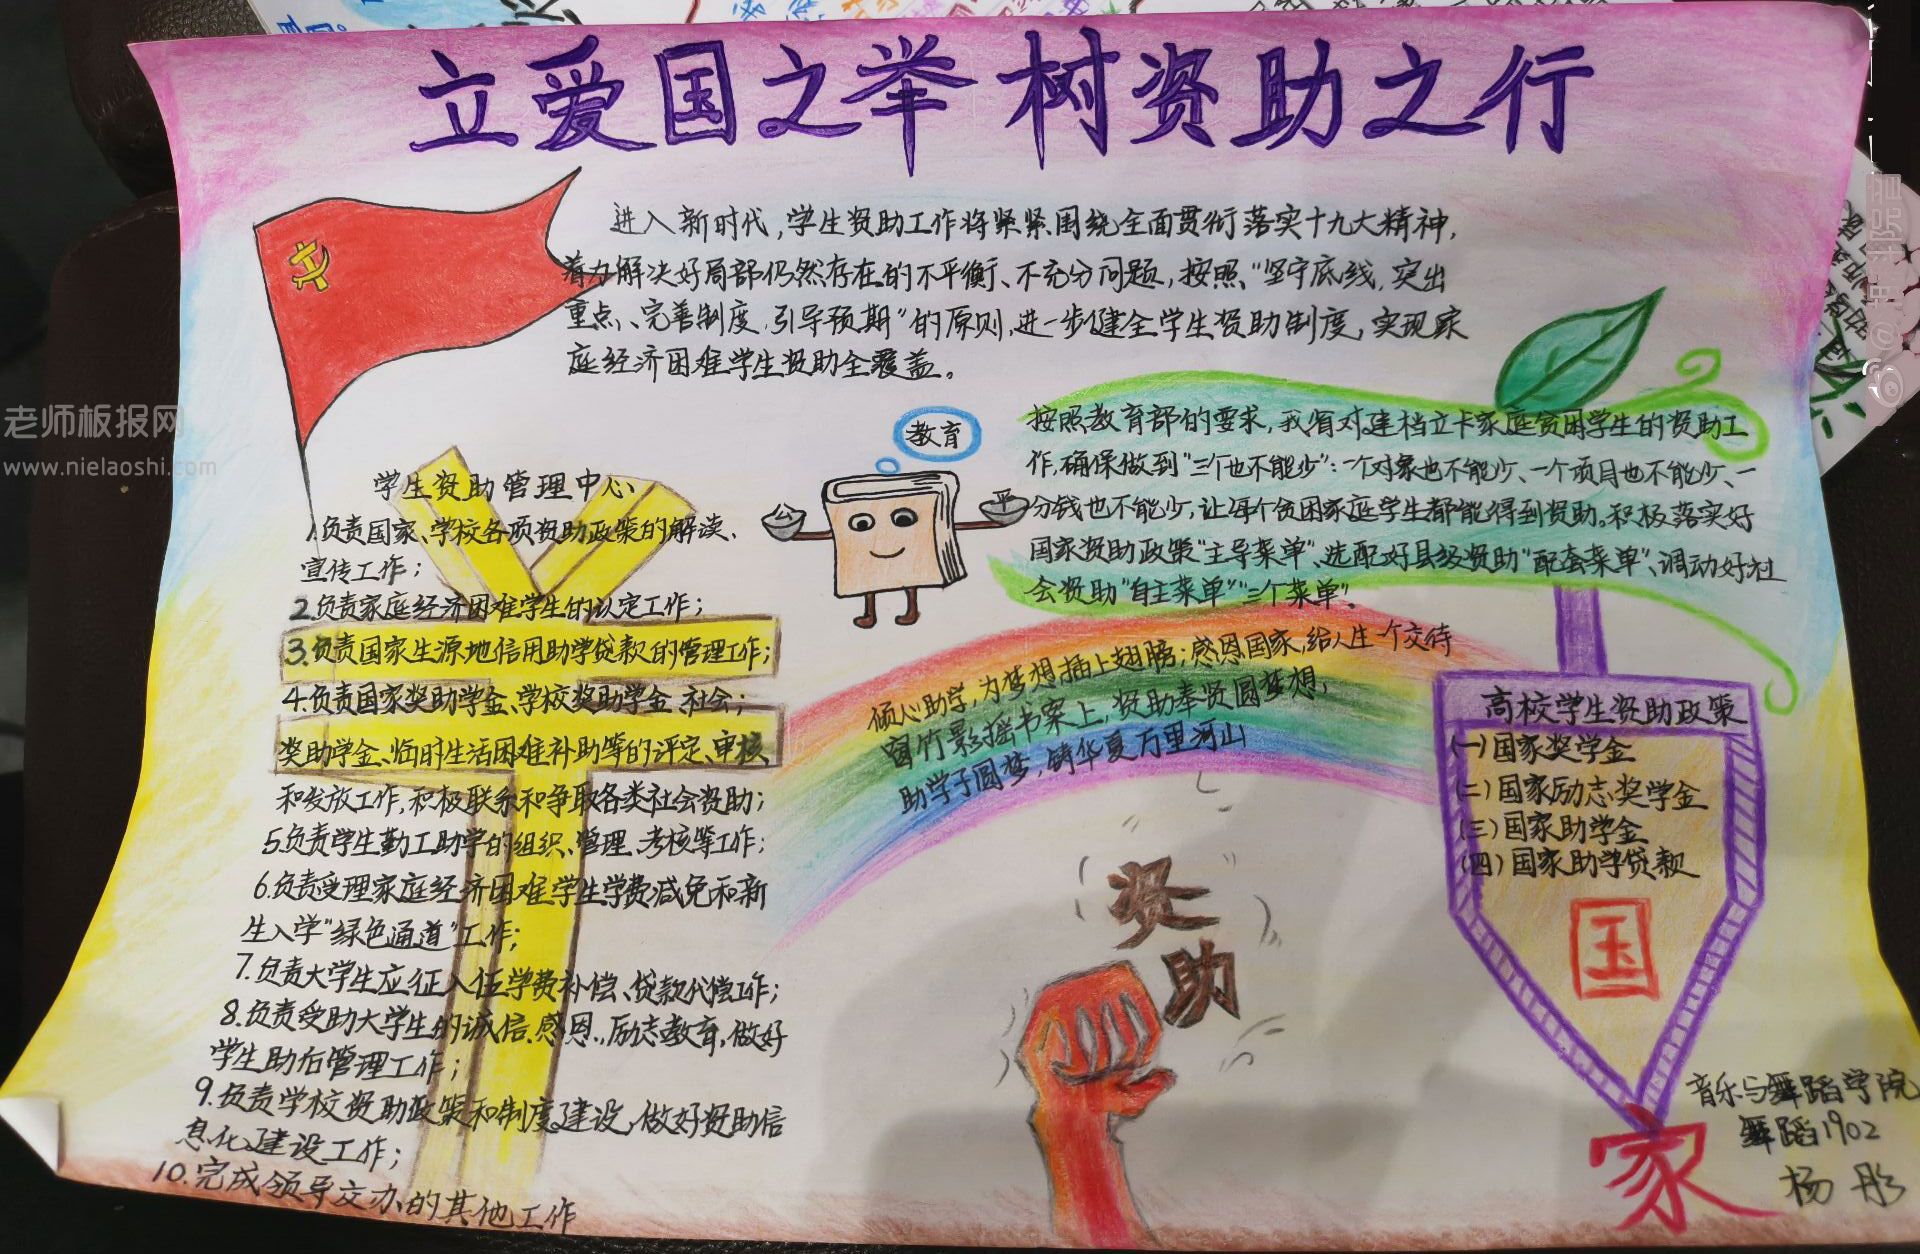 立爱国之举 树资助之行
进入新时代,学生资助工作将紧紧围绕全面贯彻落实十九大精神,
着力解决好局部仍然存在的不平衡、不充分问题,按照"坚守底线,突出
重点、完善制度,引导预期"的原则,进一步健全学生资助制度,实现家
庭经济困难学生资助全覆盖。
教育
公
平
按照教育部的要求,我省对建档立卡家庭贫困学生的资助工
作,确保做到"三个也不能少":一个对象也不能少、一个项目也不能少、一
分钱也不能少,让每个贫困家庭学生都能得到资助。积极落实好
国家资助政策"主导菜单"、选配好县级资助"配套菜单"、调动好社
会资助"自主菜单""三个菜单"。
学生资助管理中心
1.负责国家、学校各项资助政策的解读、
宣传工作;
2.负责家庭经济困难学生的认定工作;
3.负责国家生源地信用助学贷款的管理工作;
4.负责国家奖助学金、学校奖助学金、社会;
奖助学金、临时生活困难补助等的评定、审核
和发放工作,积极联系和争取各类社会资助;
5.负责学生勤工助学的组织、管理、考核等工作;
6.负责受理家庭经济困难学生学费减免和新
生入学"绿色通道"工作;
7.负责大学生应征入伍学费补偿、贷款代偿工作;
8.负责受助大学生的诚信、感恩、励志教育,做好
学生助后管理工作;
9.负责学校资助政策和制度建设,做好资助信
息化建设工作;
10.完成领导交办的其他工作
倾心助学,为梦想插上翅膀;感恩国家,给人生一个交待
窗竹影摇书案上,资助奉贤圆梦想,
助学子圆梦,铸华夏万里河山
资助
高校学生资助政策
(一)国家奖学金
(二)国家励志奖学金
(三)国家助学金
(四)国家助学贷款
国
家
音乐与舞蹈学院
舞蹈1902
杨彤
老师板报网
www.nielaoshi.com